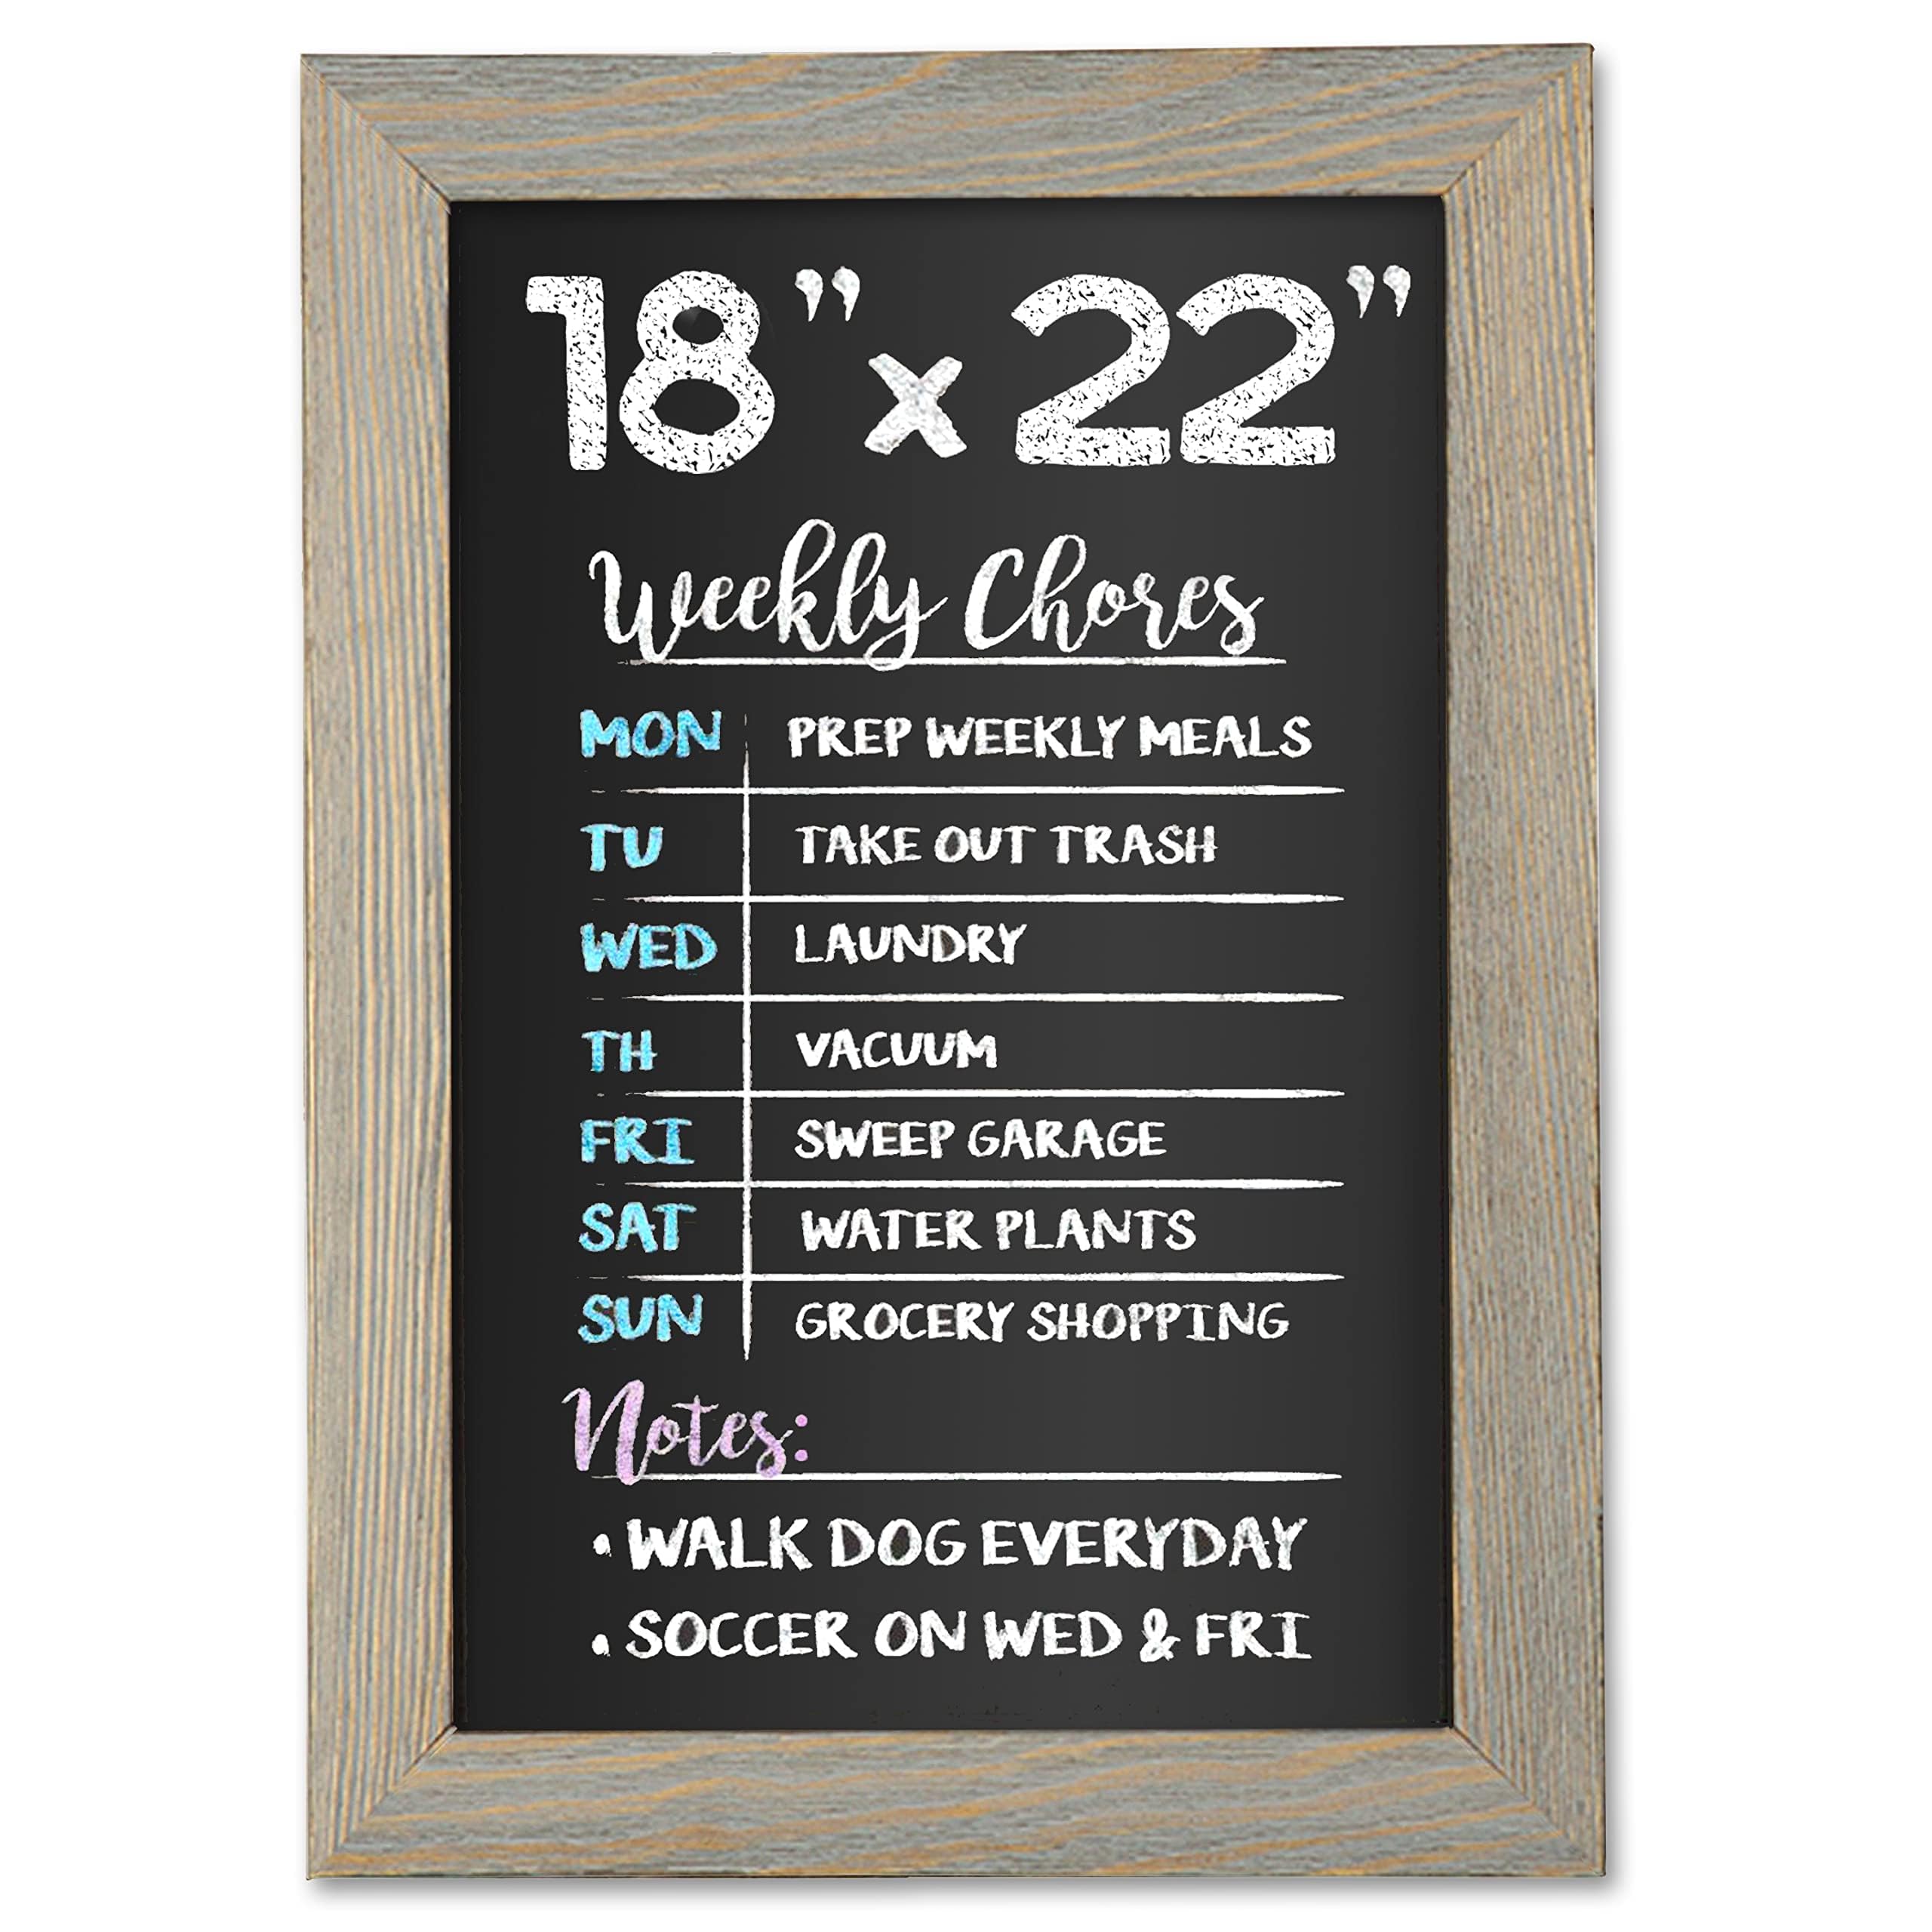 18” x 22”
Weekly Chores
MON PREP WEEKLY MEALS
TU TAKE OUT TRASH
WED LAUNDRY
TH VACUUM
FRI SWEEP GARAGE
SAT WATER PLANTS
SUN GROCERY SHOPPING
Notes:
• WALK DOG EVERYDAY
• SOCCER ON WED & FRI